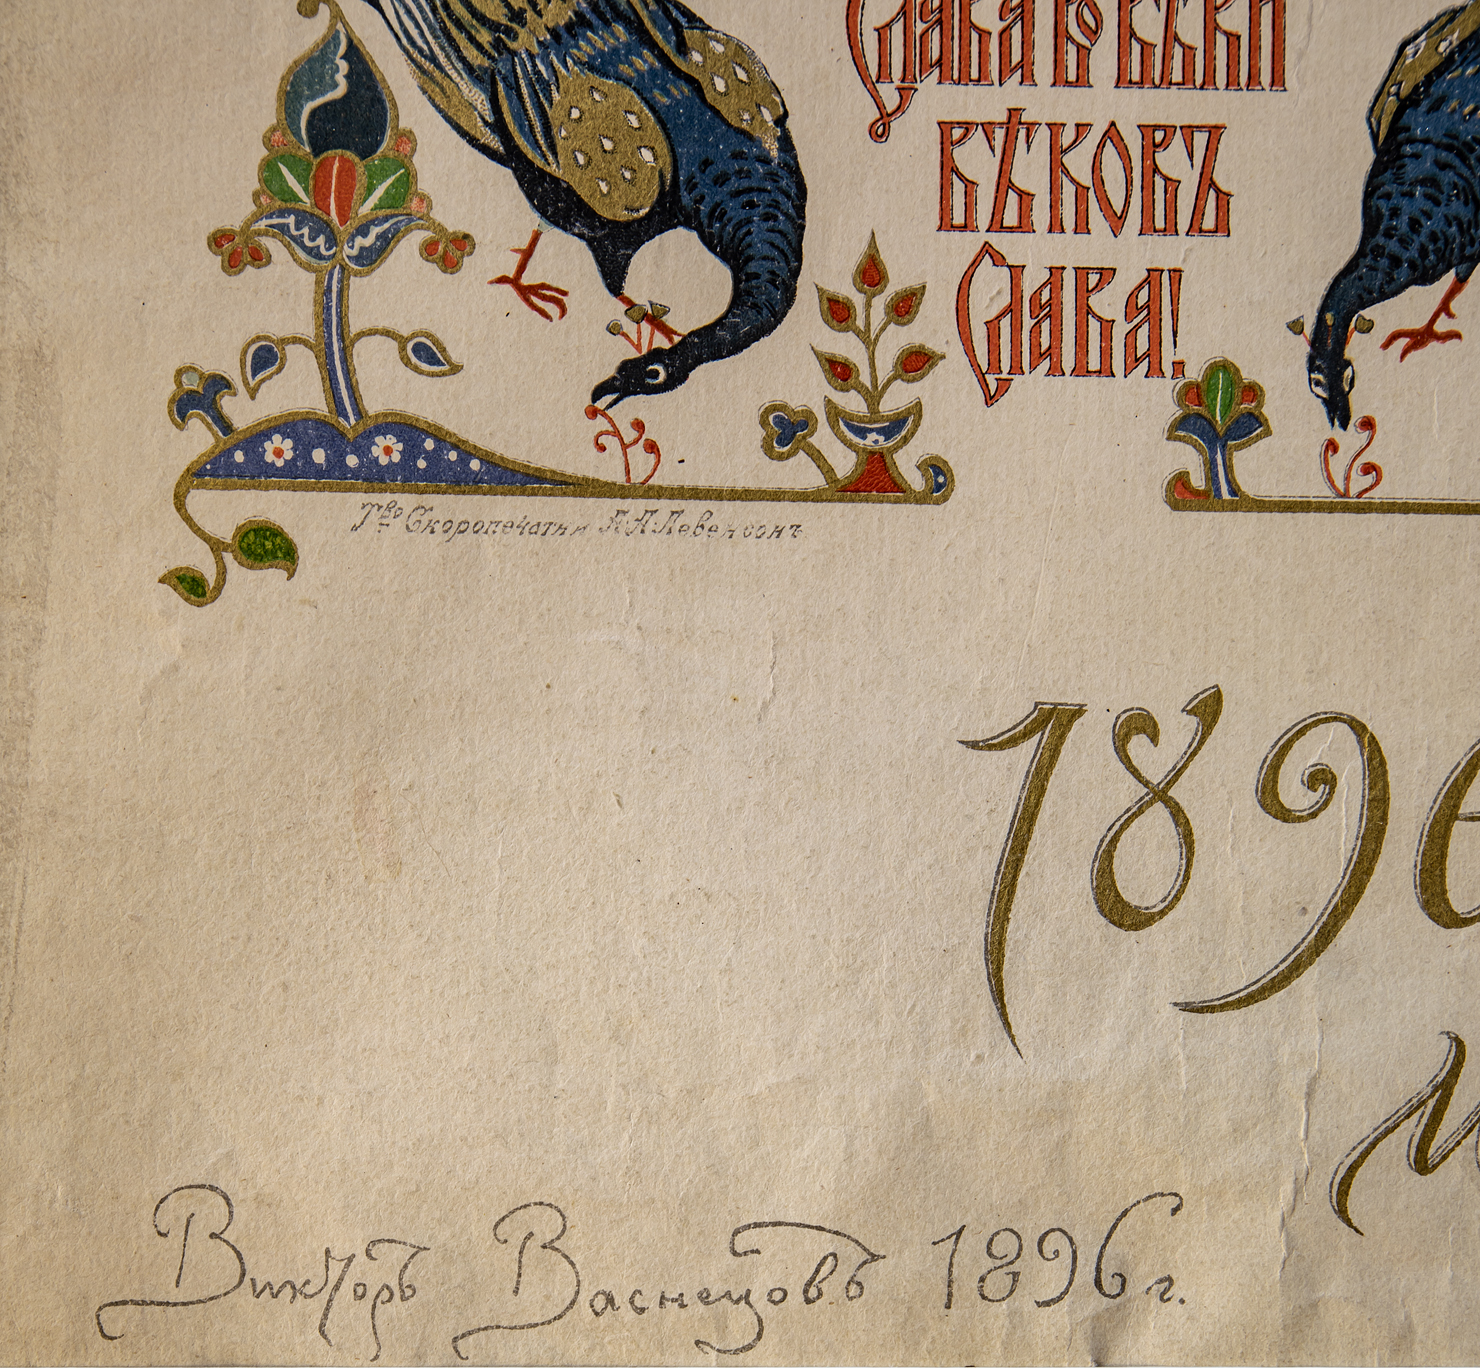 Слава во вѣки
вѣковъ
Слава!
Т-во Скоропечатни А.А.Левенсонъ
189
Викторъ Васнецовъ 1896 г.